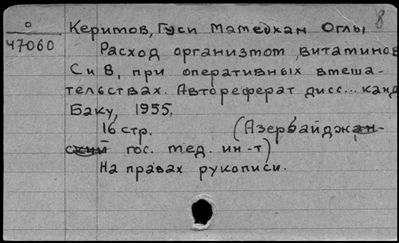 Керимов, Гуси Мамедхан Оглы 8
о
47060
Расход организмом витаминов
С и В, при оперативных вмеша-
тельствах. Автореферат дисс... канд
Баку, 1955.
16 стр. (Азербайджан-
ский гос. мед. ин-т)
На правах рукописи.